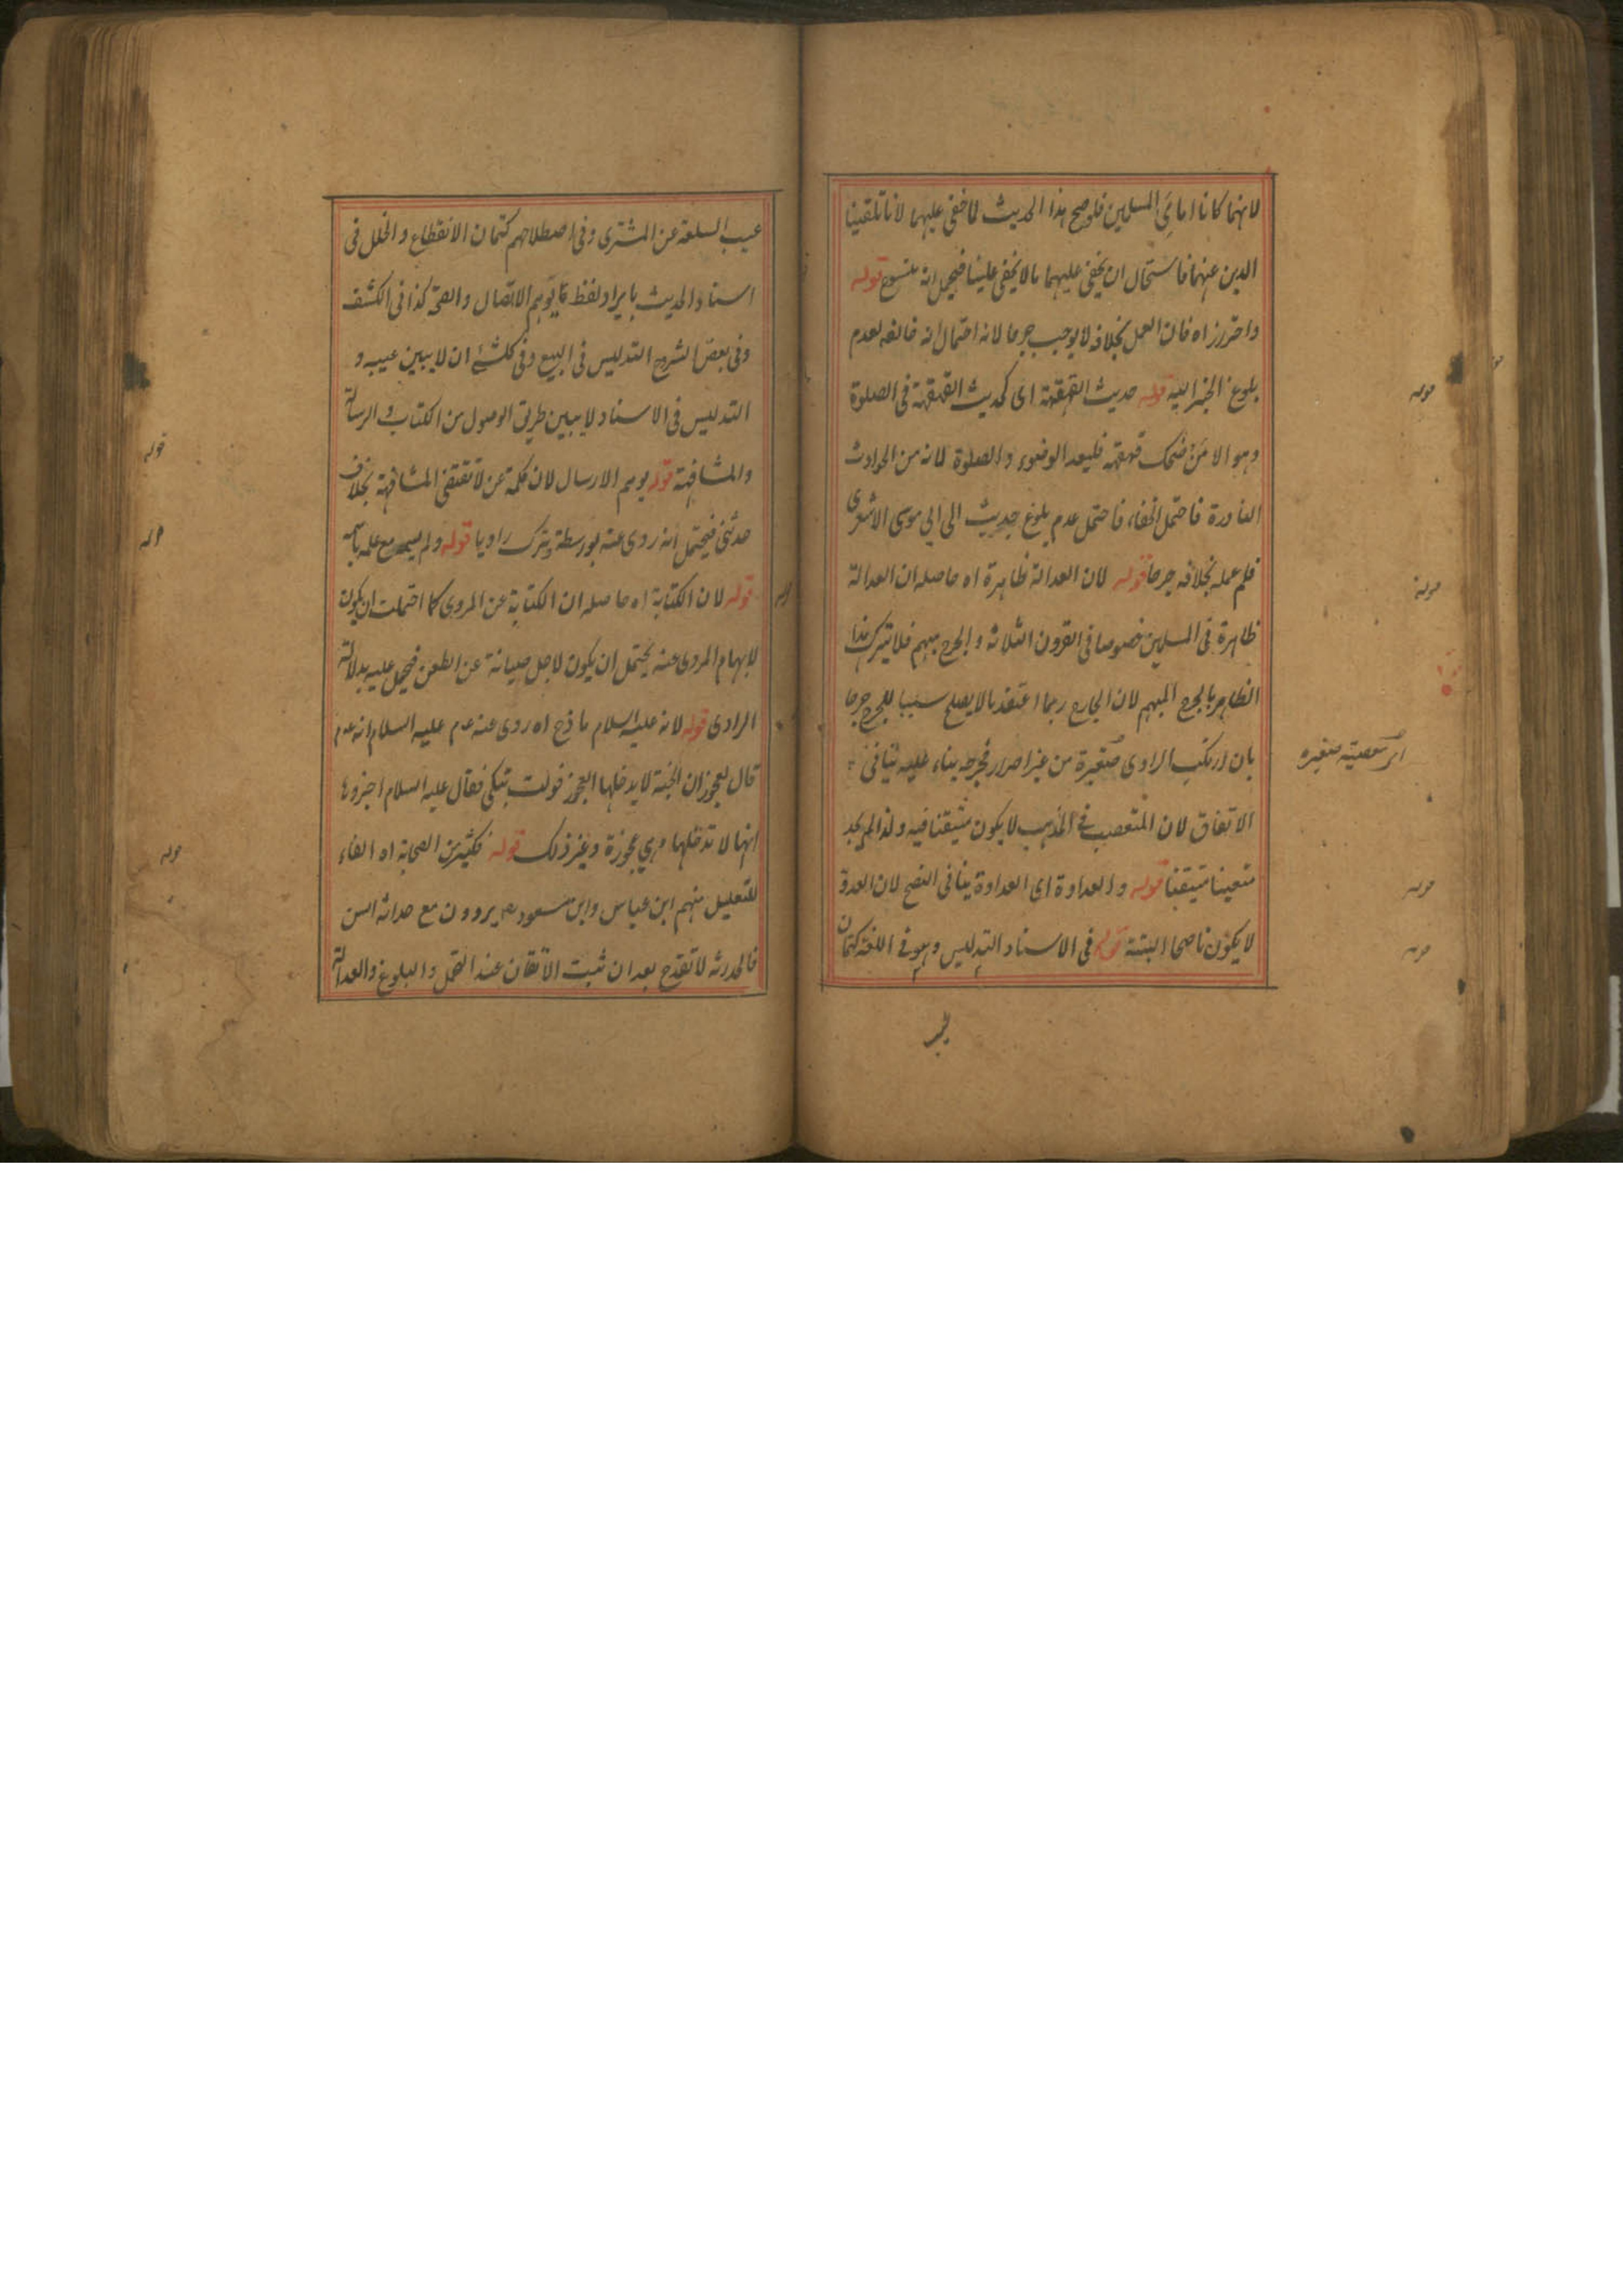 لانهما كانا امامي المسلمين فلو صح هذا الحديث لما خفي عليهما لانا تلقينا
الدين عنهما فاستحال ان يخفى عليهما ما لا يخفى علينا فيحمل انه منسوخ قوله
واحترز اه فان العمل بخلافه لا يوجب جرحا لانه احتمال انه خالفه لعدم
بلوغ الخبر اليه قوله حديث القهقهة اى كحديث القهقهة فى الصلوة
وهو الا من ضحك قهقهة فليعد الوضوء والصلوة لانه من الحوادث
النادرة فاحتمل الخفاء فاحتمل عدم بلوغ حديث الى ابي موسى الاشعرى
فلم عمله بخلافه جرحا قوله لان العدالة ظاهرة اه حاصله ان العدالة
ظاهرة فى المسلمين خصوصا فى القرون الثلاثة والجرح مبهم فلا يترك هذا
الظاهر بالجرح المبهم لان الجارح ربما اعتقد ما لا يصلح سببا للجرح جرحا
بان ارتكب الراوى صغيرة من غير اصرار فجرحه بناء عليه ينافى
اى معصية صغيره
الاتفاق لان المتعصب في المذهب لا يكون متيقنا فيه ولذا لم يجد
متعينا متيقنا قوله والعداوة اى العداوة ينافى النصح لان العدو
لا يكون ناصحا البتة قوله فى الاسناد التدليس وهو في اللغة كتمان
قوله
قوله
قوله
قوله
عيب السلعة عن المشترى وفى اصطلاحهم كتمان الانقطاع والخلل فى
اسناد الحديث بايراد لفظ يوهم الاتصال والصحة كذا فى الكشف
وفى بعض الشروح التدليس فى البيع وفى كل شئ ان لا يبين عيبه و
التدليس فى الاسناد لا يبين طريق الوصول من الكتاب والرسالة
والمشافهة قوله يوهم الارسال لان كلمة عن لا تقتضى المشافهة بخلاف
حدثنى فيحتمل انه روى عنه بواسطة وترك راويا قوله ولم يسم مع علمه باسمه
قوله لان الكتابة اه حاصله ان الكتابة عن المروى كما احتملت ان يكون
لابهام المروى عنه يحتمل ان يكون لاجل صيانة عن الطعن فيحمل عليه بدلالة
الراوى قوله لانه عليه السلام مازح اه روى عنه عليه السلام انه
قال لعجوز ان الجنة لا يدخلها العجوز فولت تبكى فقال عليه السلام اخبروها
انها لا تدخلها وهي عجوزة وغير ذلك قوله فكثير من الصحابة اه الفاء
للتعليل منهم ابن عباس وابن مسعود يروون مع حداثة السن
فالحداثة لا تقدح بعد ان ثبت الاتقان عند التحمل والبلوغ والعدالة
قوله
قوله
قوله